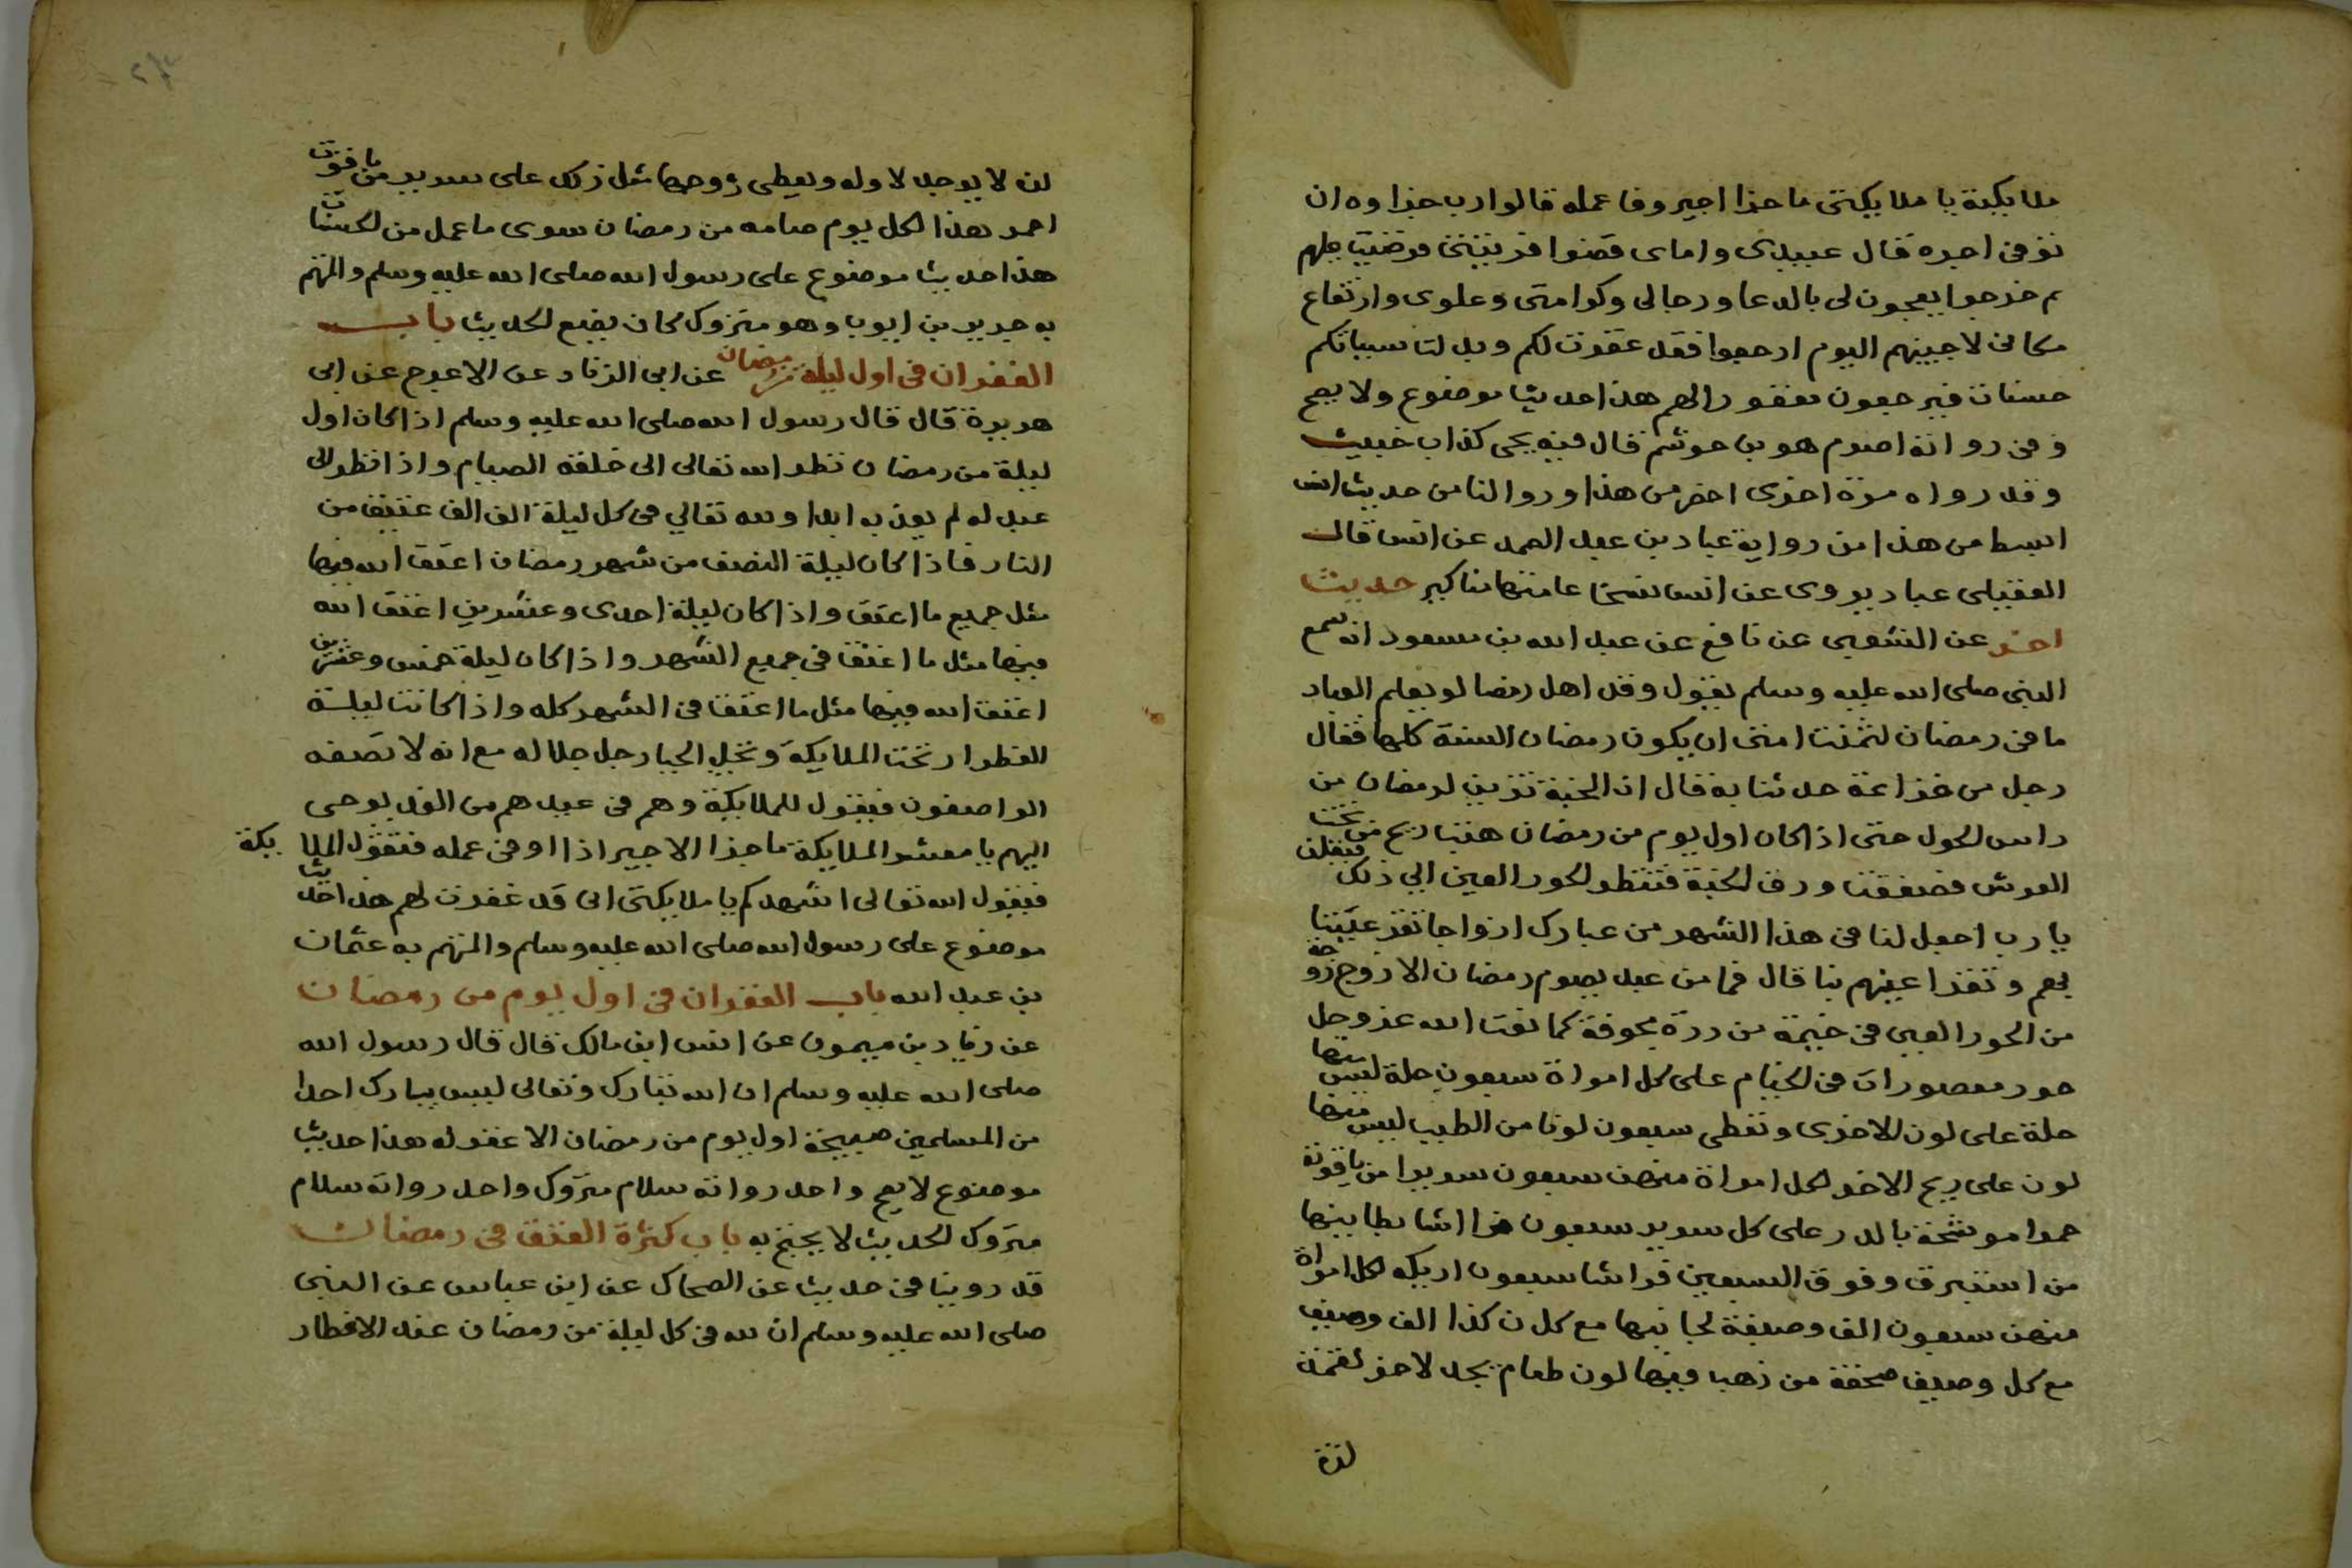 ملايكته يا ملايكتى ما جزا اجير وفا عمله قالوا رب جزاوه ان
توفى اجره قال عبيدى واماى قضوا فريضتى فرضيت عليهم
ثم خرجوا يعجون لى بالدعا وجلالى وكرامتى وعلوى وارتفاع
مكانى لاجيبنهم اليوم ارجعوا فقد غفرت لكم وبدلت سيياتكم
حسنات فيرجعون مغفور الهم هذا حديث موضوع ولا يصح
وفى رواته اصرم هو بن حوشم قال فيه يحى كذاب خبيث
وقد رواه مرة اخرى اخصر من هذا وروا لنا من حديث انس
ابسط من هذا من رواية عباد بن عبد الصمد عن انس قال
العقيلى عباد يروى عن انس نسخا عامتها مناكير حديث
اخر عن الشعبى عن نافع عن عبد الله بن مسعود انه سمع
النبى صلى الله عليه وسلم يقول وقد اهل رمضا لو يعلم العباد
ما فى رمضان لتمنت امتى ان يكون رمضان السنة كلها فقال
رجل من خزاعة حدثنا به قال ان الجنة تزين لرمضان من
راس الحول حتى اذا كان اول يوم من رمضان هبت ريح من تحت
العرش فصفقت ورق الجنة فتنظر الحور العين الى ذلك فيقلن
يارب اجعل لنا فى هذا الشهر من عبادك ازواجا تقر عيننا
بهم وتقر اعينهم بنا قال فما من عبد يصوم رمضان الا زوج زوجة
من الحور العين فى خيمة من درة مجوفة كما نعت الله عز وجل
حور مقصورات فى الخيام على كل امراة سبعون حلة ليس منها
حلة على لون الاخرى وتعطى سبعون لونا من الطيب ليس منها
لون على ريح الاخر لكل امراة منهن سبعون سريرا من ياقوتة
حمرا موشحة بالدر على كل سرير سبعون فراشا بطاينها
من استبرق وفوق السبعين فراشا سبعون اريكه لكل امراة
منهن سبعون الف وصيفة لحاجتها مع كل ن كذا الف وصيف
مع كل وصيف صحفة من ذهب فيها لون طعام يجد لاخر لقمة
لذة
لن لا يوجد لاوله ويعطى زوجها مثل ذلك على سرير من ياقوت
احمر هذا لكل يوم صامه من رمضان سوى ما عمل من الحسنات
هذا حديث موضوع على رسول الله صلى الله عليه وسلم والمتهم
به جرير بن ايوب وهو متروك كان يضع الحديث باب
الغفران فى اول ليلة من رمضان عن ابى الزناد عن الاعرج عن ابى
هريرة قال قال رسول الله صلى الله عليه وسلم اذا كان اول
ليلة من رمضان نظر الله تعالى الى خلقه الصيام واذا نظر الى
عبد له لم يعذبه ابدا ولله تعالي فى كل ليلة الف الف عتيق من
النار فاذا كان ليلة النصف من شهر رمضان اعتق الله فيها
مثل جميع ما اعتق واذا كان ليلة احدى وعشرين اعتق الله
فيها مثل ما اعتق فى جميع الشهر واذا كان ليلة خمس وعشرين
اعتق الله فيها مثل ما اعتق فى الشهر كله واذا كانت ليلة
الفطر ارتجت الملايكة وتجلى الجبار جل جلاله مع انه لا تصفه
الواصفون فيقول للملايكة وهم فى عيدهم من الغد يوحى
اليهم يا معشر الملايكة ما جزا الاجير اذا اوفى عمله فتقول الملايكة
فيقول الله تعالى اشهدكم يا ملايكتى انى قد غفرت لهم هذا حديث
موضوع على رسول الله صلى الله عليه وسلم والمتهم به عثمان
بن عبد الله باب الغفران فى اول يوم من رمضان
عن زياد بن ميمون عن انس ابن مالك قال قال رسول الله
صلى الله عليه وسلم ان الله تبارك وتعالى ليس بتارك احدا
من المسلمين صبيحة اول يوم من رمضان الا غفر له هذا حديث
موضوع لا يصح واحد رواته سلام متروك واحد رواته سلام
متروك الحديث لا يحتج به باب كثرة العتق فى رمضان
قد روينا فى حديث عن الضحاك عن ابن عباس عن النبى
صلى الله عليه وسلم ان لله فى كل ليلة من رمضان عند الافطار